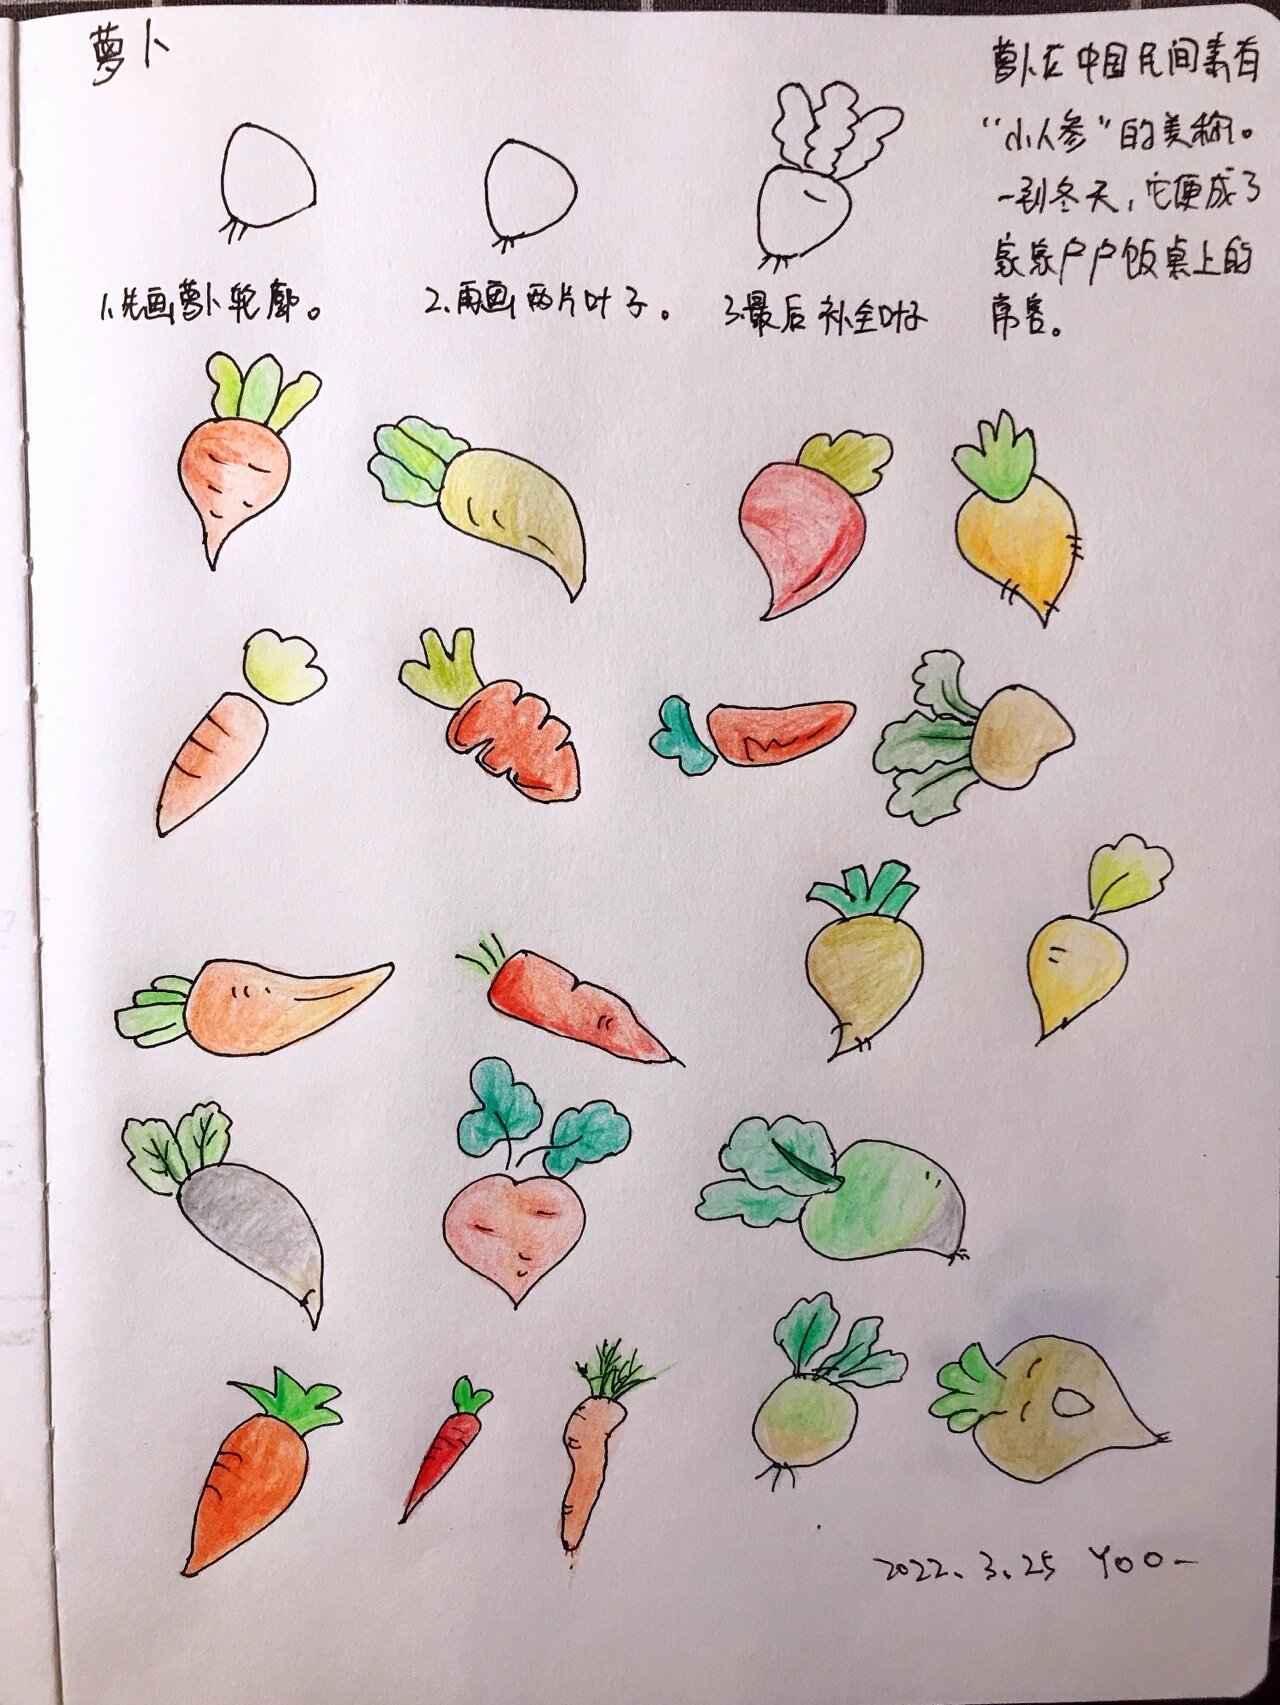 萝卜
萝卜在中国民间素有
“小人参”的美称。
一到冬天,它便成了
家家户户饭桌上的
常客。
1.先画萝卜轮廓。
2.再画两片叶子。
3.最后补全叶子
2022.3.25 YOO-